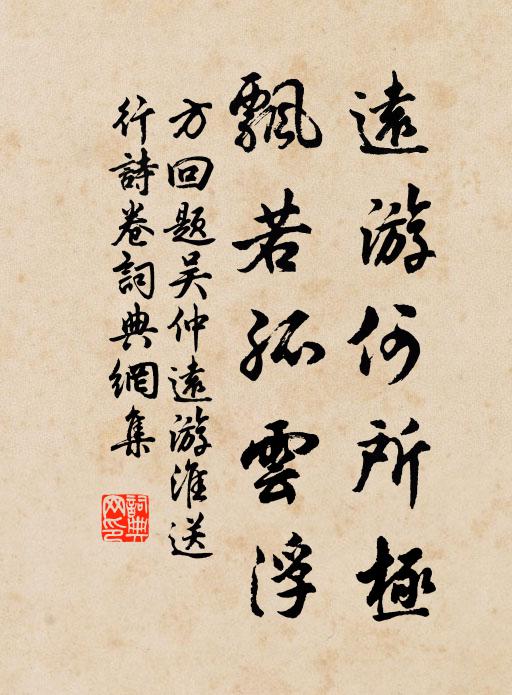 遠游何所極
飄若孤雲浮
方回題吴仲遠游淮送
行詩卷詞典網集
詞典网印